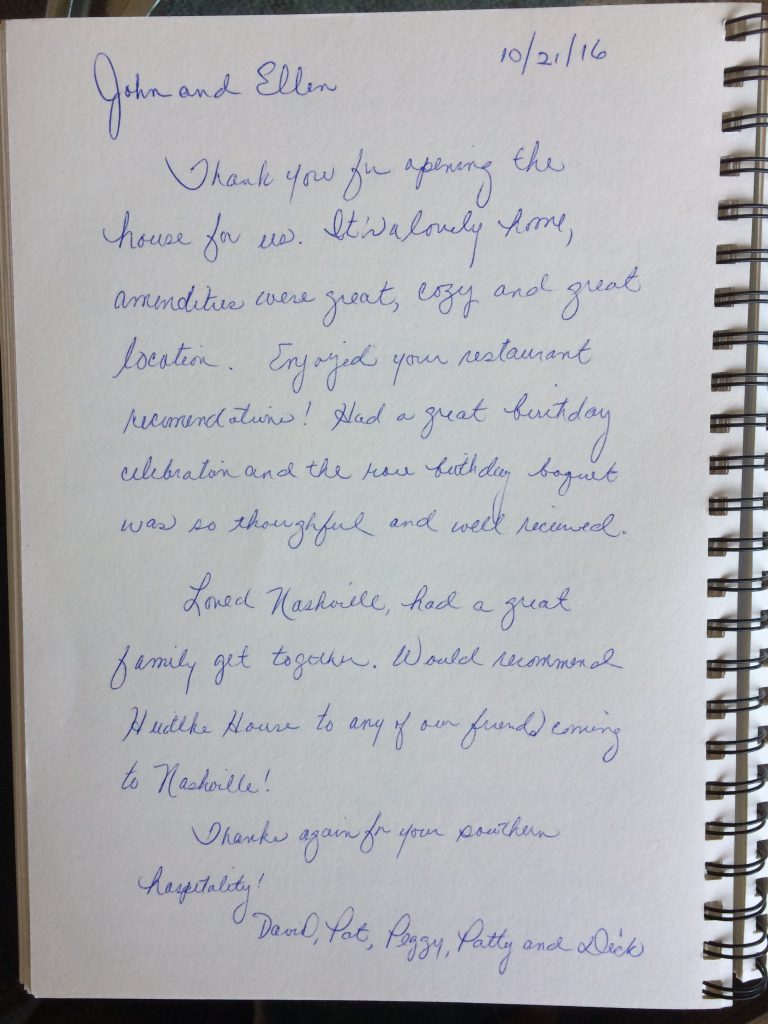 10/21/16
John and Ellen
Thank you for opening the
house for us. It's a lovely home,
amendities were great, cozy and great
location. Enjoyed your restaurant
recomendations! Had a great birthday
celebration and the rose birthday boquet
was so thoughful and well recieved.
Loved Nashville, had a great
family get together. Would recommend
House to any of our friends coming
to Nashville!
Thanks again for your southern
hospitality!
David, Pat, Peggy, Patty and Dick